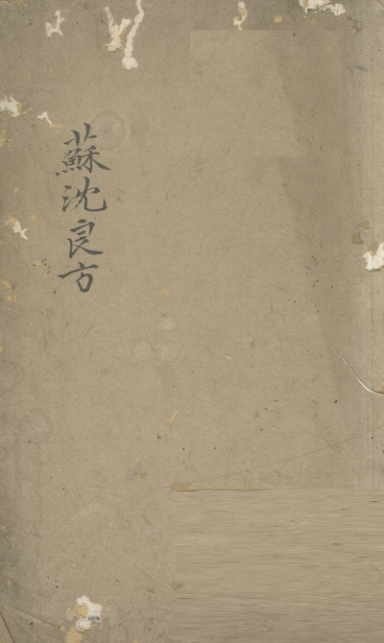 蘇沈良方